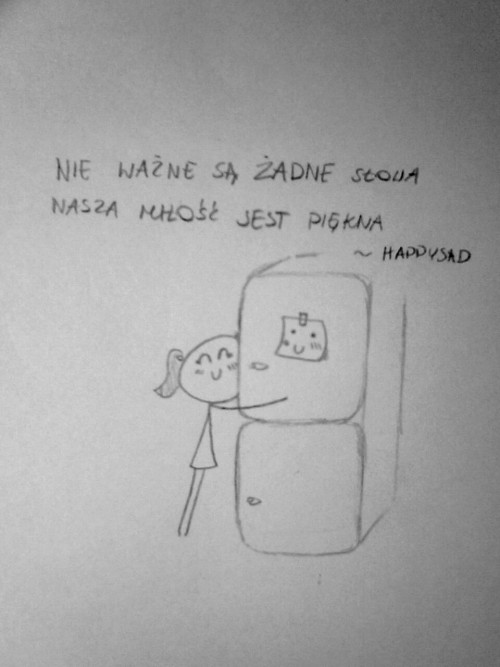 NIE WAŻNE SĄ ŻADNE SŁOWA
NASZA MIŁOŚĆ JEST PIĘKNA
~ HAPPYSAD